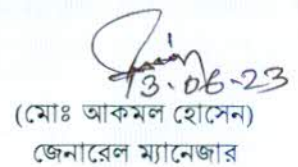 13.06-23
(মোঃ আকমল হোসেন)
জেনারেল ম্যানেজার